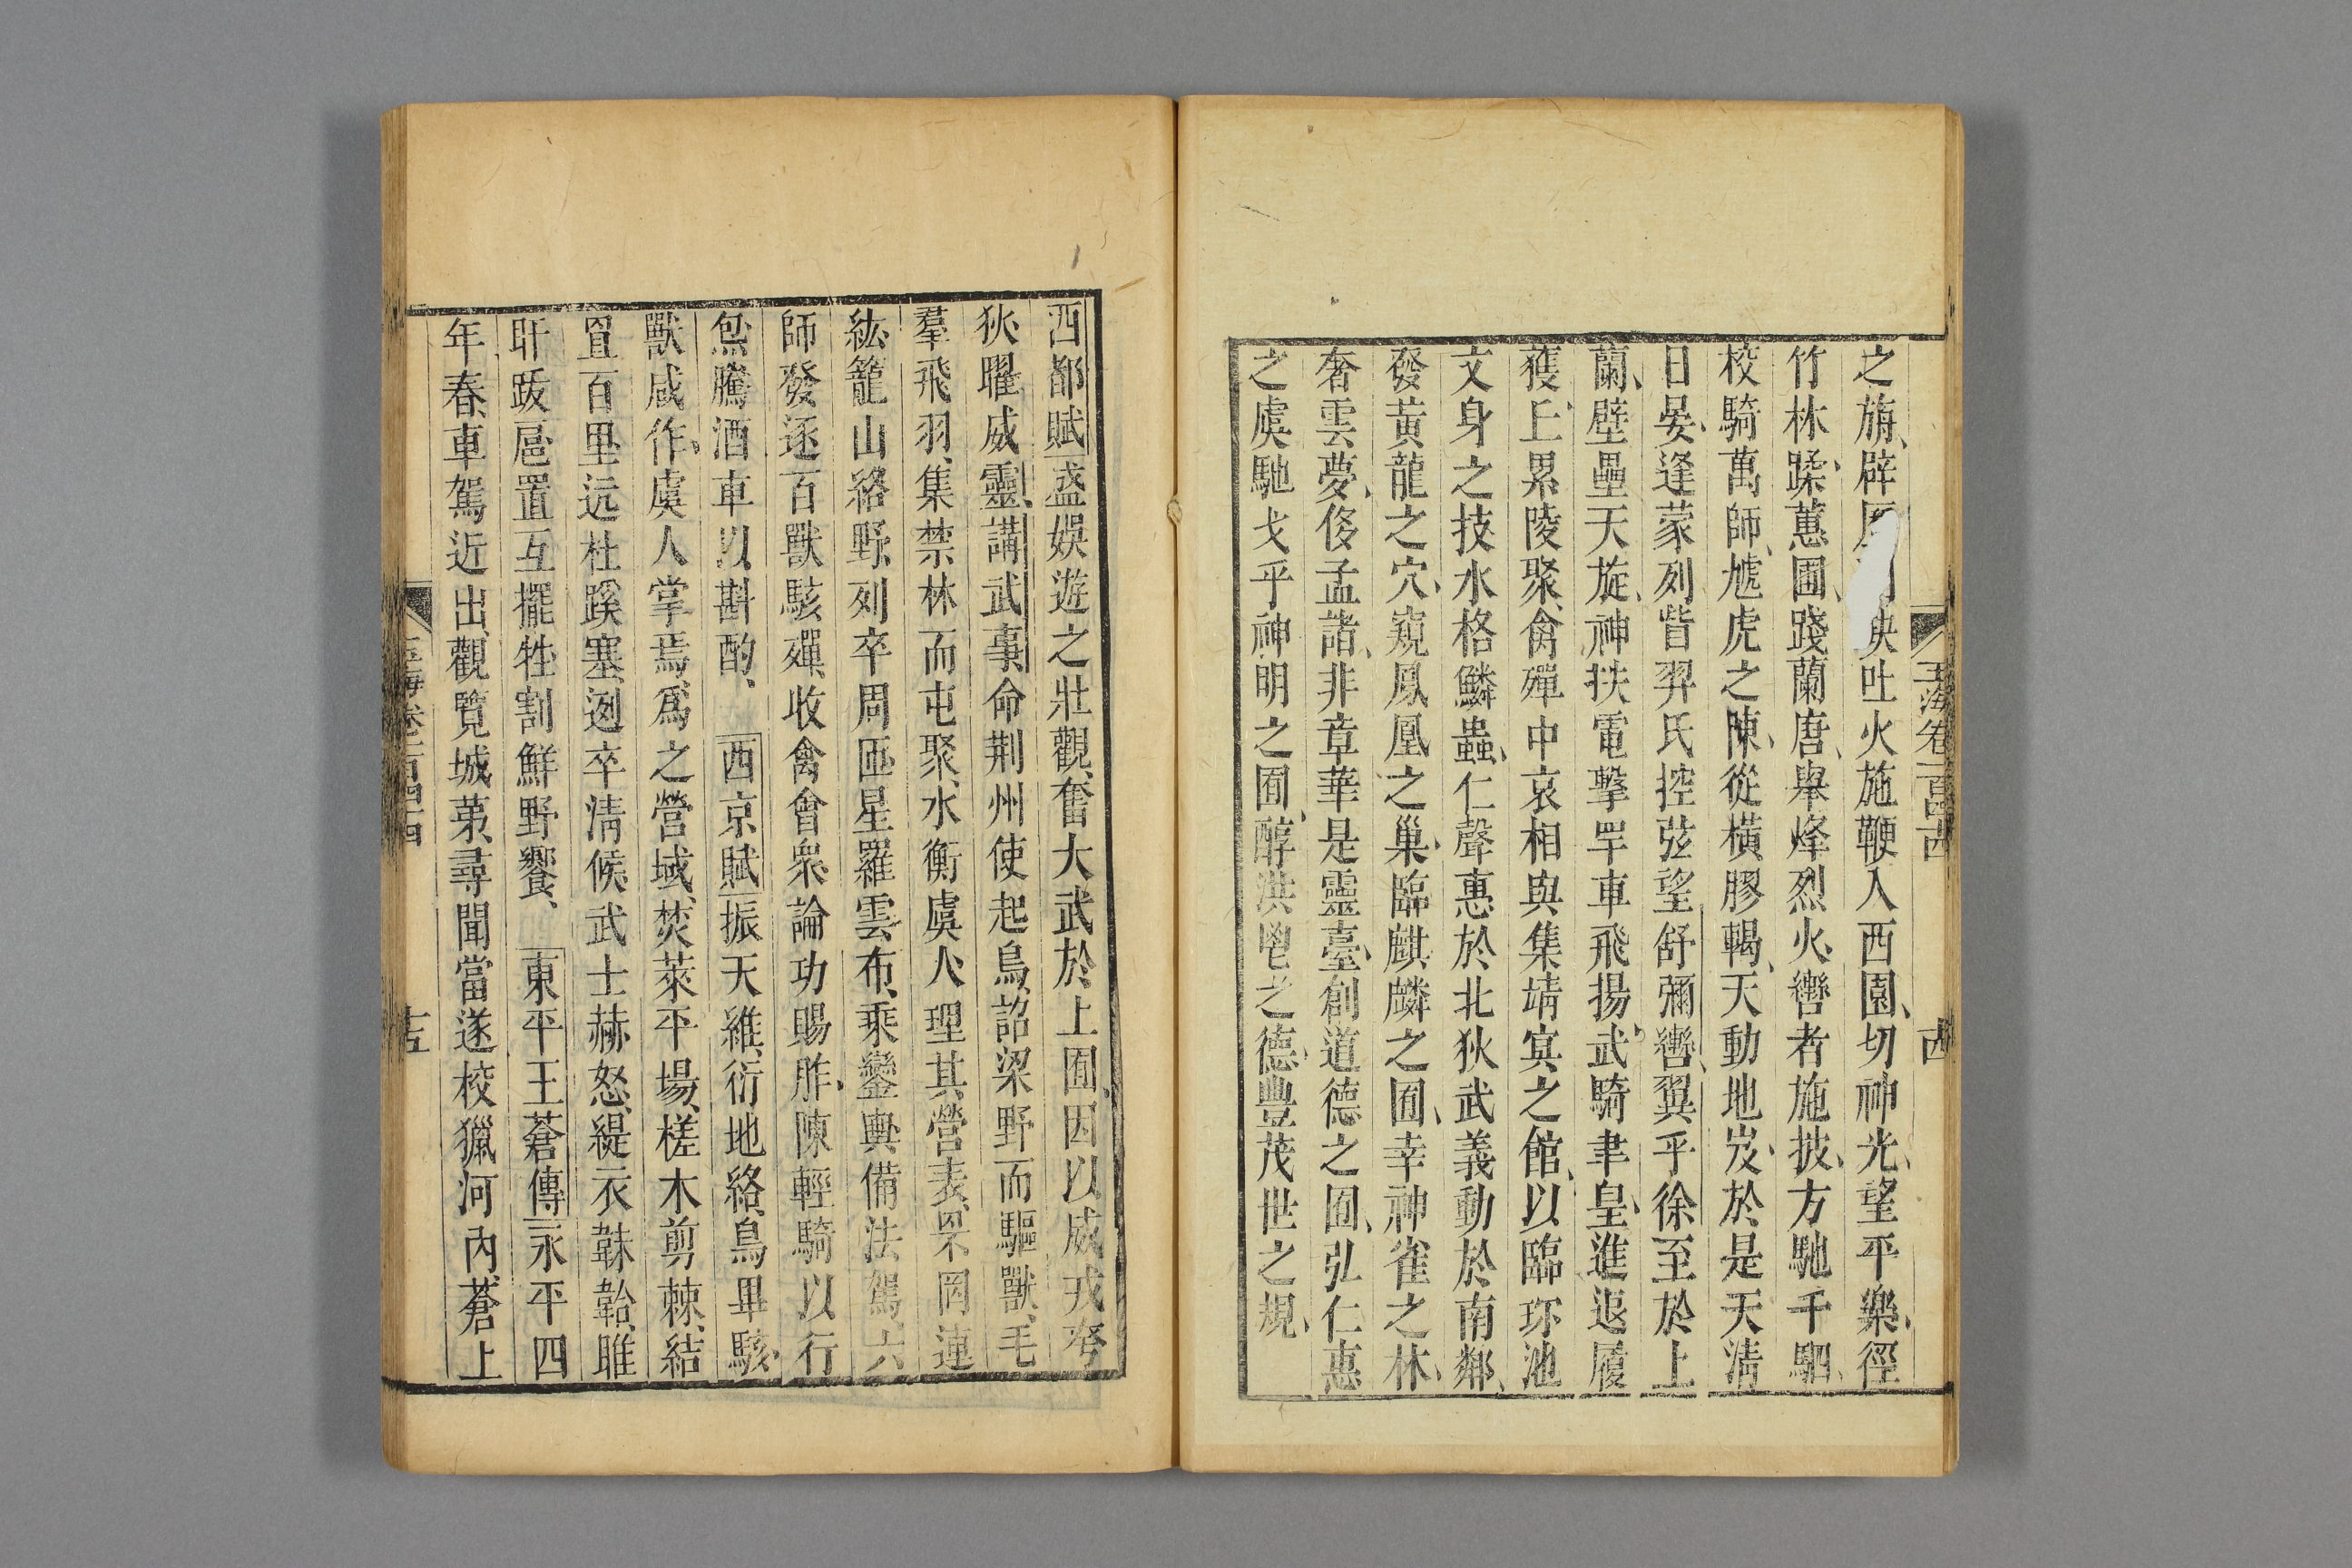 玉海卷一百四十四
十四
之旃、辟歷列缺吐火施鞭入西園、切神光、望平樂、徑
竹林、蹂蕙圃、踐蘭唐、舉烽烈火、轡者施披、方馳千駟、
校騎萬師、虓虎之陳、從橫膠轕、天動地岌、於是天清
日晏、逢蒙列眥羿氏控弦望舒彌轡、翼乎徐至於上
蘭、壁壘天旋、神抶電擊罕車飛揚、武騎聿皇、進退履
獲、上累陵聚、禽殫中哀相與集靖冥之館、以臨珎池
文身之技水格鱗蟲、仁聲惠於北狄武義動於南鄰、
發黃龍之穴、窺鳳凰之巢、臨麒麟之囿、幸神雀之林、
奢雲夢、侈孟諸、非章華是靈臺、創道德之囿、弘仁惠
之虞馳弋乎神明之囿、醇洪鬯之德、豐茂世之規、
西都賦盛娛遊之壯觀、奮大武於上囿、因以威戎夸
狄、耀威靈、講武事、命荆州使起鳥、詔梁野而驅獸、毛
羣飛羽、集禁林而屯聚、水衡虞人、理其營表、罘罔連
紘、籠山絡野、列卒周匝、星羅雲布、乘鑾輿備法駕、六
師發逐百獸駭殫、收禽會衆、論功賜胙、陳輕騎以行
炰、騰酒車以斟酌、西京賦振天維、衍地絡、鳥畢駭、
獸咸作、虞人掌焉、爲之營域、焚萊平場、槎木剪棘、結
罝百里迒杜蹊塞、迾卒清候、武士赫怒、緹衣韎韐、睢
盱跋扈置互擺牲割鮮野饗、東平王蒼傳永平四
年春、車駕近出、觀覽城第、尋聞當遂校獵河內、蒼上
玉海卷一百四十四
十五